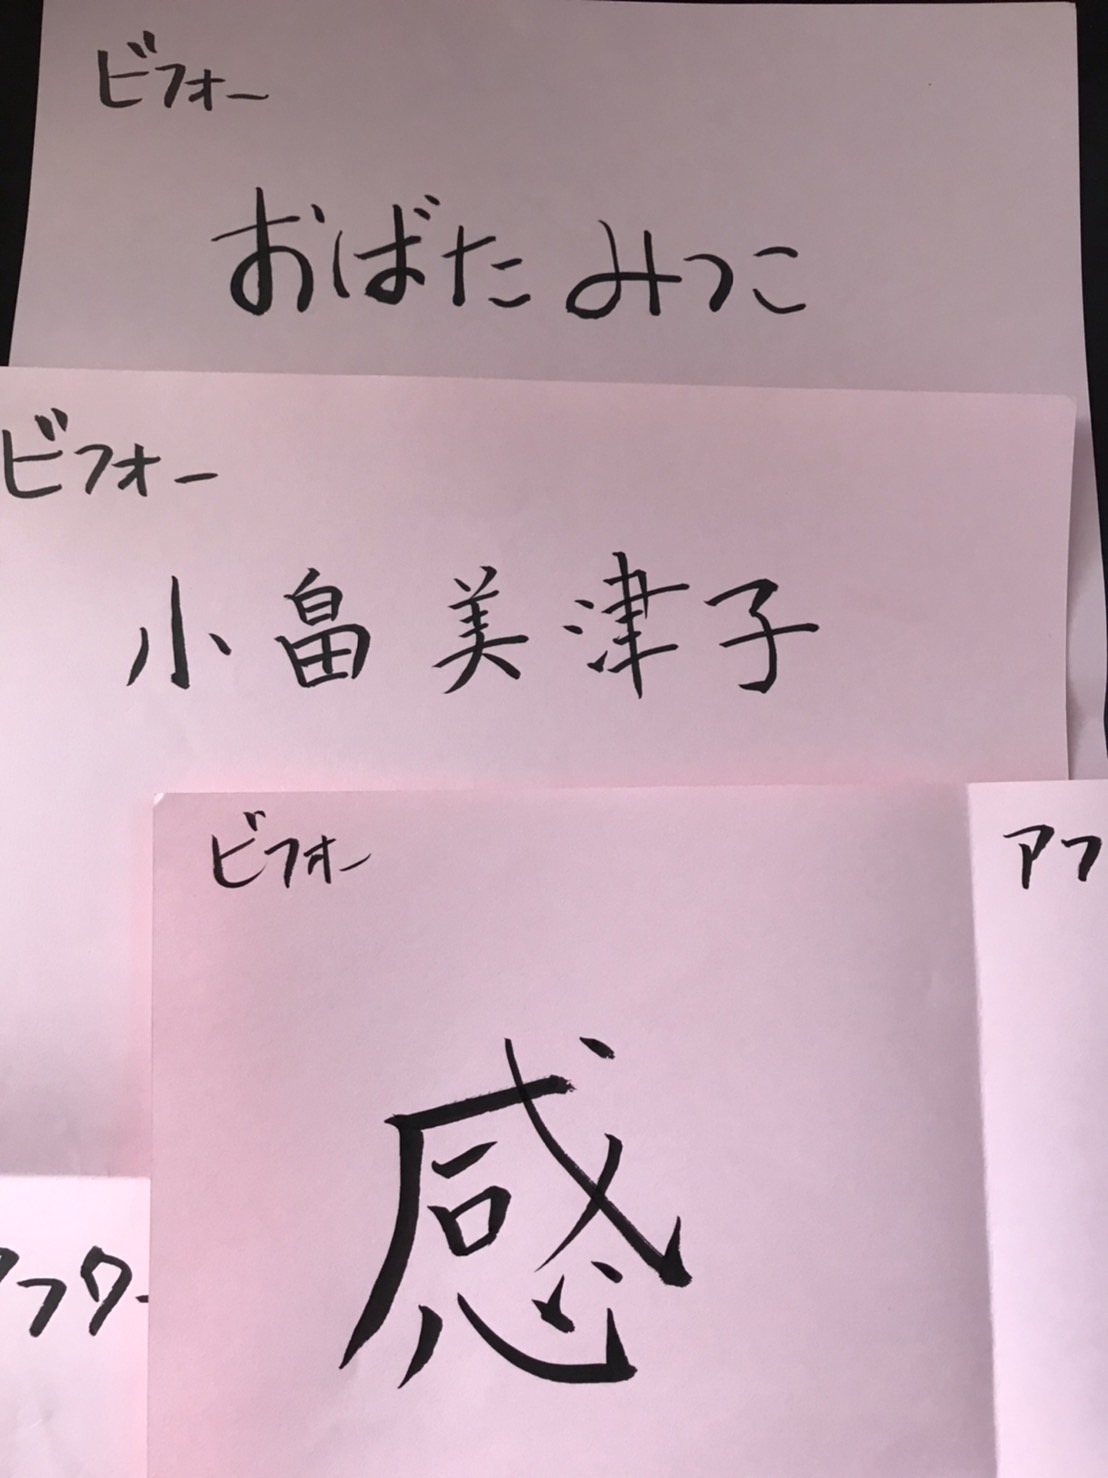 ビフォー
おばた みつこ
ビフォー
小畠 美津子
ビフォー
アフ
感
フター